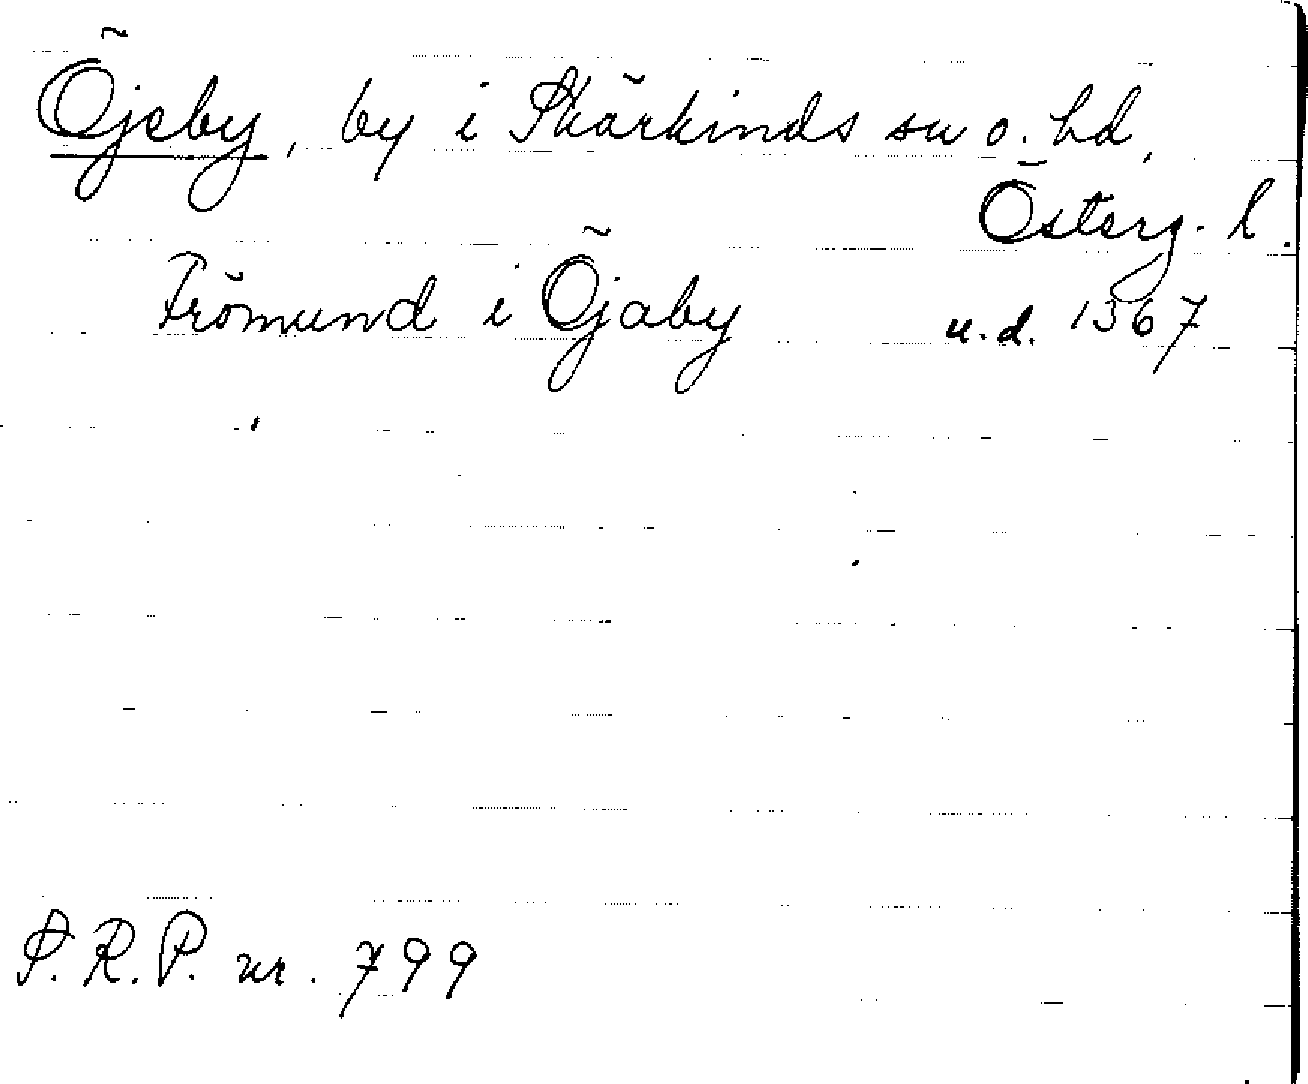 Öjeby, by i Skärkinds sn o. hd,
Österg. l.
Frömund i Öjaby u.d. 1367
S.R.P. nr. 799